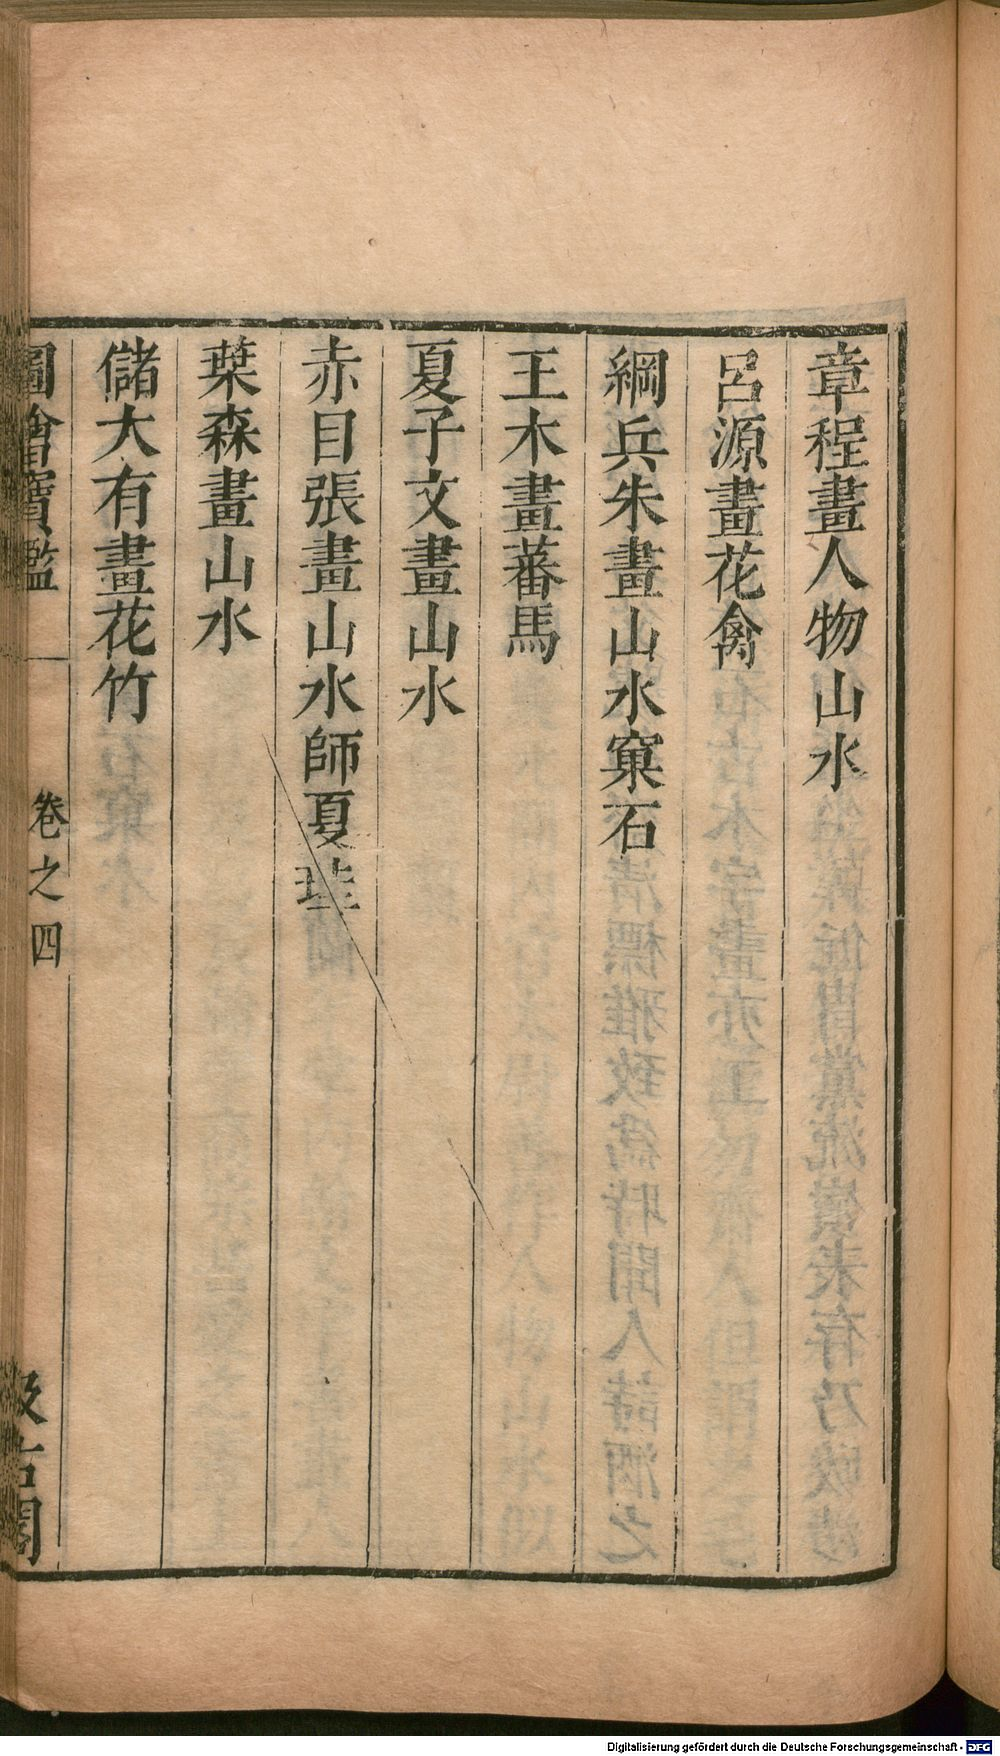 章程畫人物山水
呂源畫花禽
綱兵朱畫山水窠石
王木畫蕃馬
夏子文畫山水
赤目張畫山水師夏珪
葉森畫山水
儲大有畫花竹
圖繪寶鑑 卷之四 汲古閣
Digitalisierung gefördert durch die Deutsche Forschungsgemeinschaft - DFG